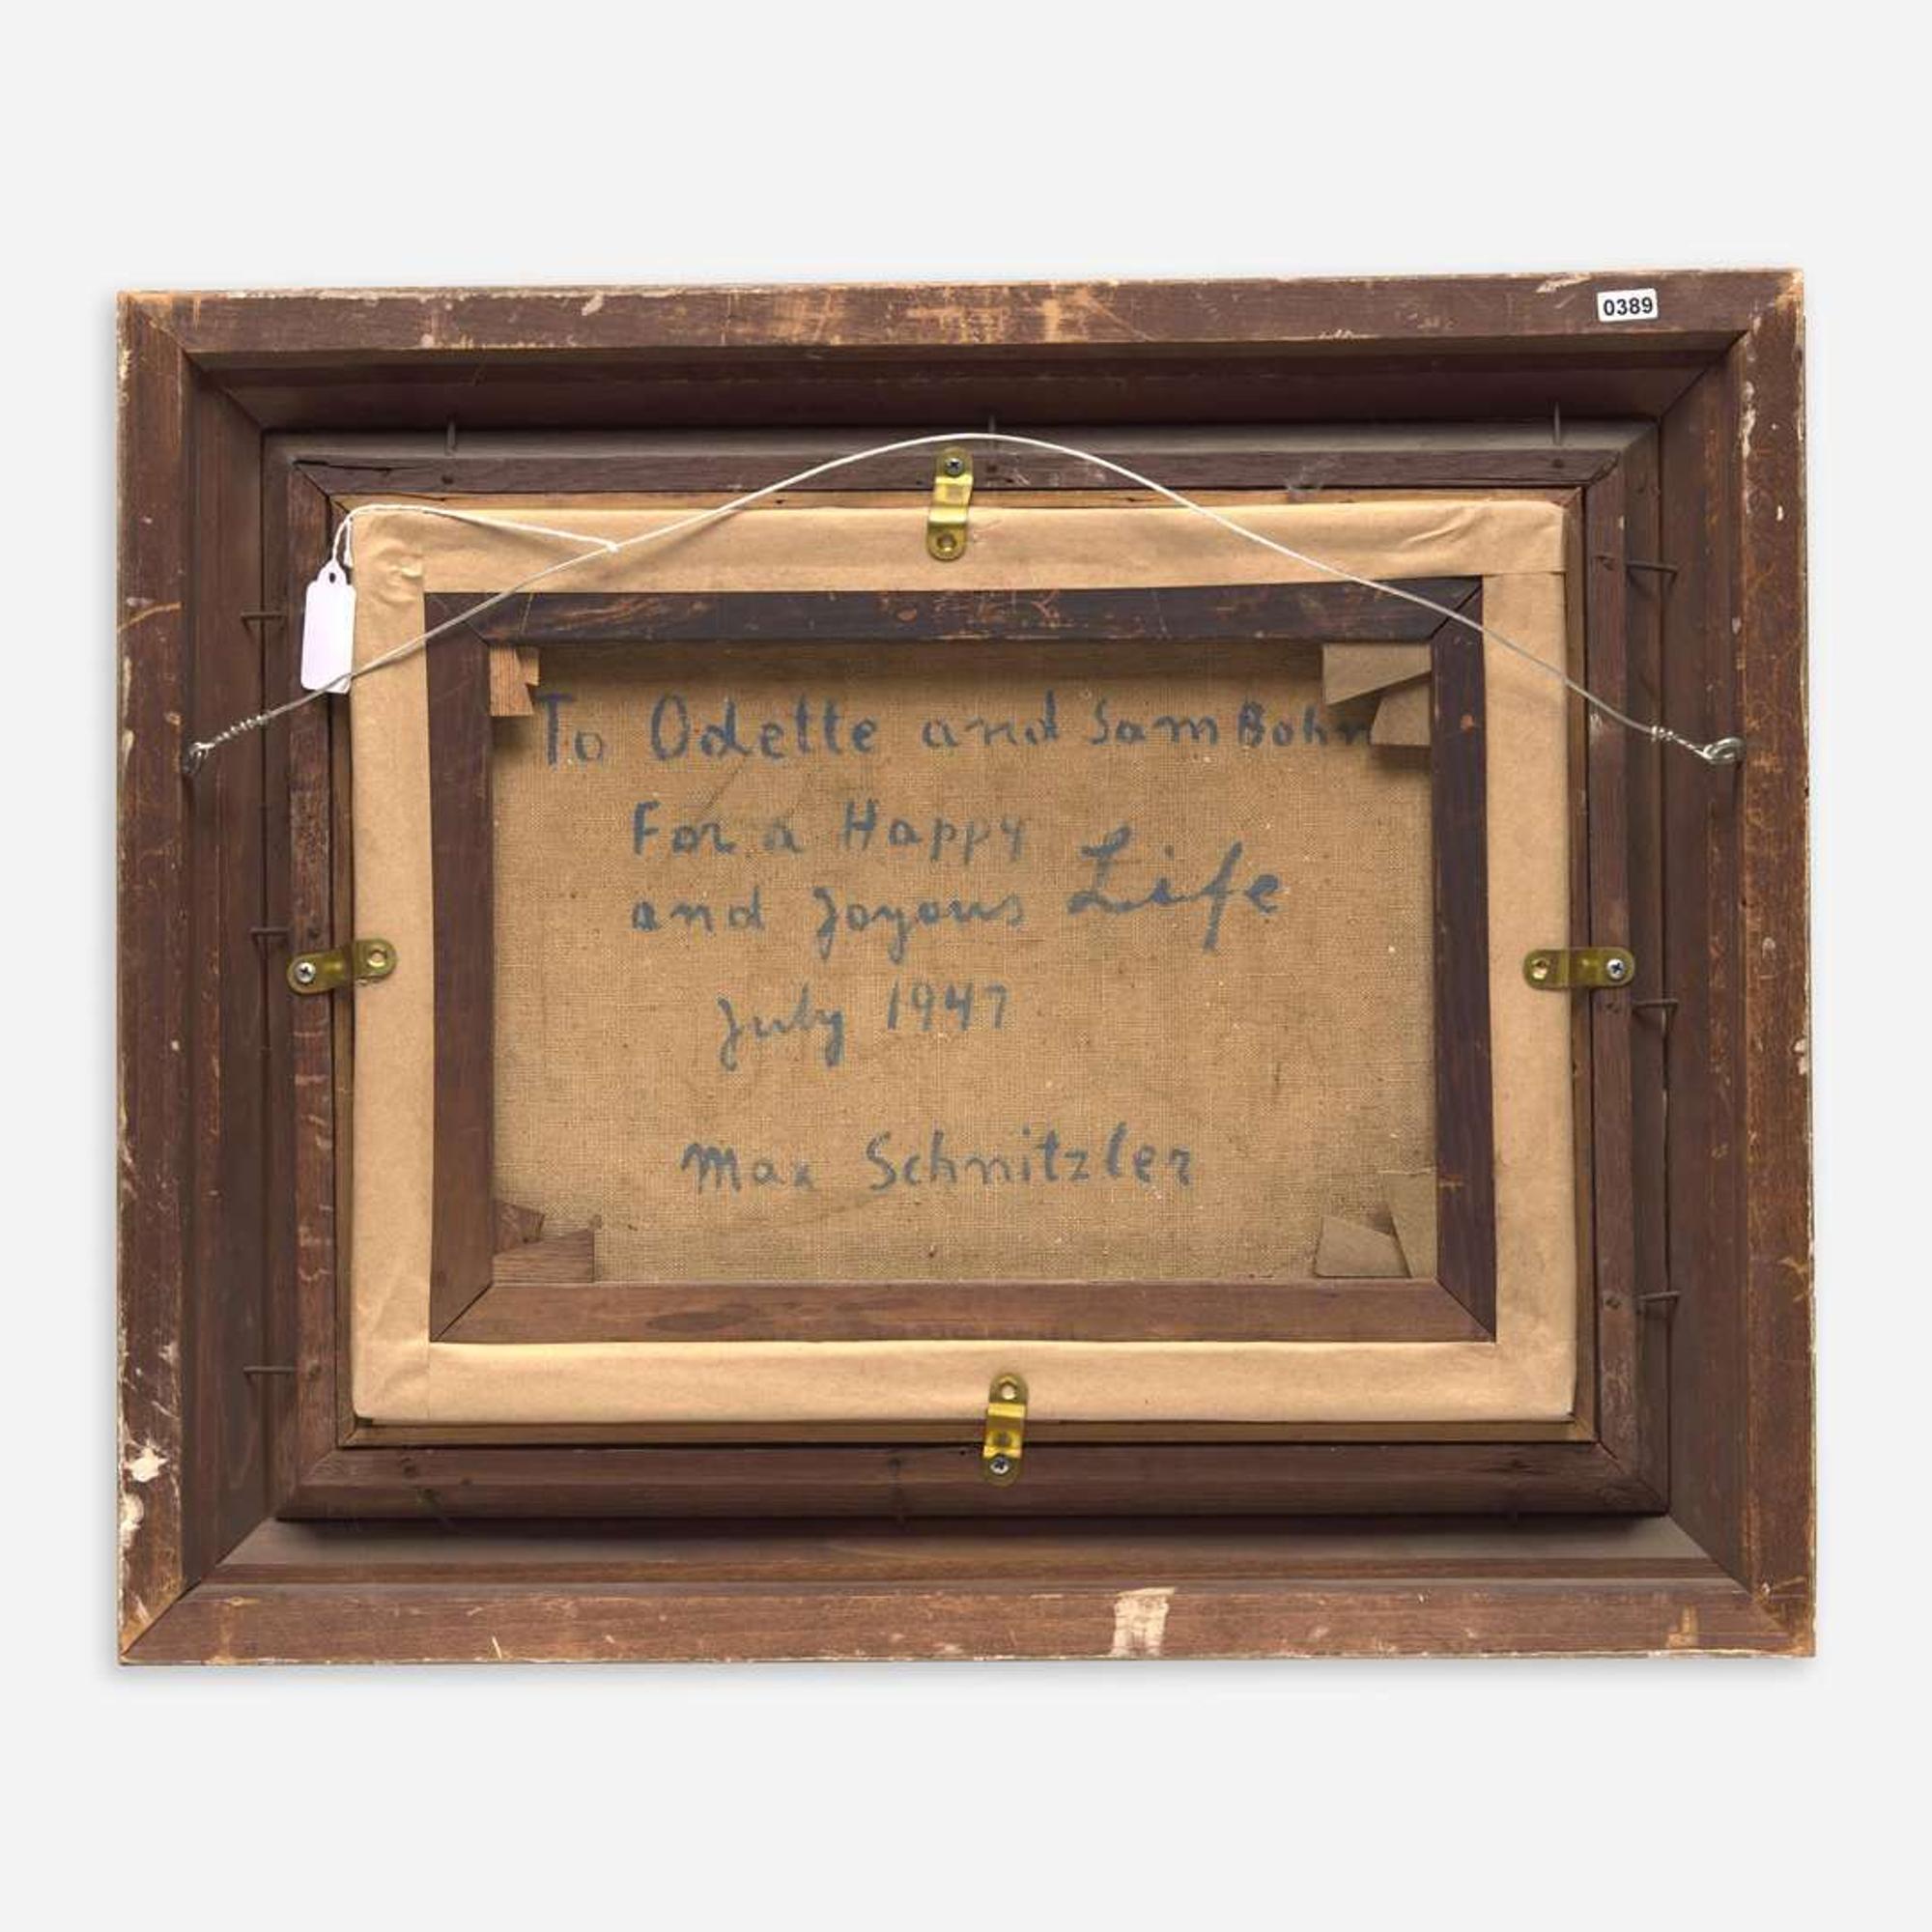 0389
To Odette and Sam Bohn
For a Happy
and Joyous Life
July 1947
Max Schnitzler